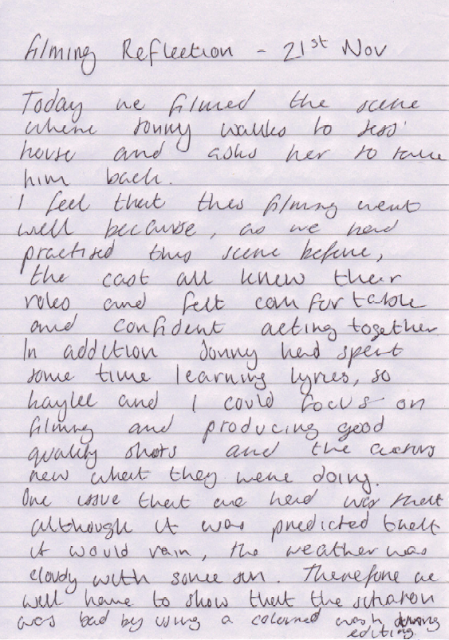 filming Reflection - 21st Nov
Today we filmed the scene
where Jonny walks to Jess'
house and asks her to take
him back.
I feel that this filming went
well because, as we had
practised this scene before,
the cast all knew their
roles and felt comfortable
and confident acting together
In addition Jonny had spent
some time learning lyrics, so
haylee and I could focus on
filming and producing good
quality shots and the actors
new what they were doing.
One issue that we had was that
although it was predicted that
it would rain, the weather was
cloudy with some sun. Therefore we
will have to show that the situation
was bad by using a coloured wash during
editing